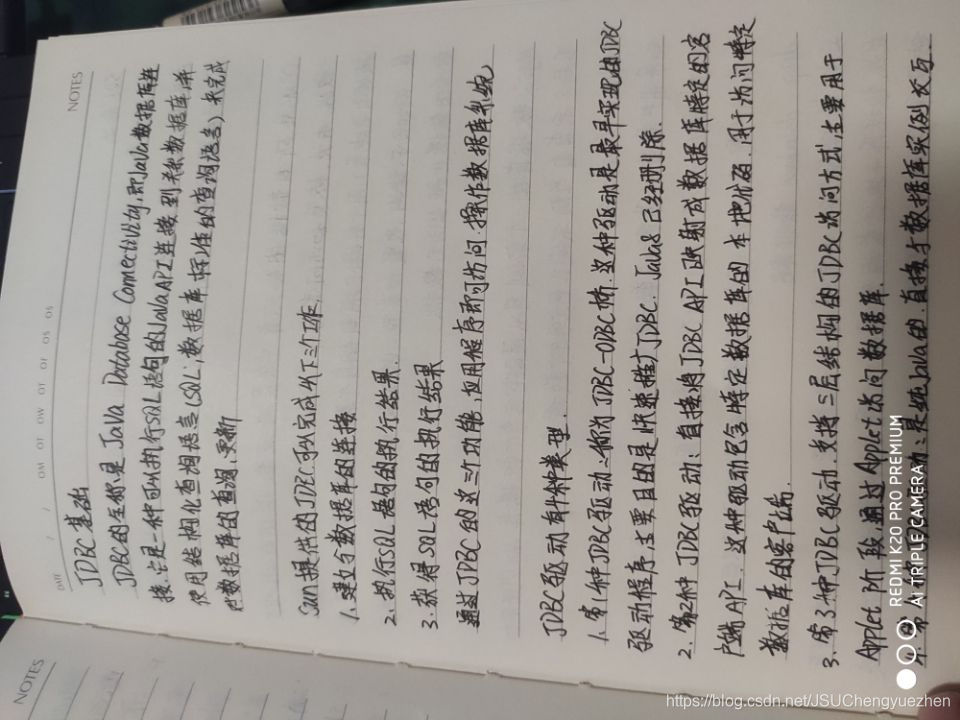 NOTES
DATE / / OM OT OW OT OF OS OS
JDBC基础
JDBC的全称是Java Database Connectivity,即Java数据库连
接.它是一种可以执行SQL语句的JavaAPI连接到关系数据库,并
使用结构化查询语言(SQL,数据库标准的查询语言)来完成
对数据库的查询、更新
Sun提供的JDBC可以完成以下三个工作.
1.建立与数据库的连接
2.执行SQL语句的执行结果.
3.获得SQL语句的执行结果
通过JDBC的这三个功能,应用程序即可访问 操作数据库系统
JDBC驱动有4种类型.
1.第1种JDBC驱动:称为JDBC-ODBC桥.这种驱动是最早实现的JDBC
驱动程序,主要目的是快速推广JDBC. Java8已经删除.
2.第2种JDBC驱动:直接将JDBC API映射成数据库特定的客
户端API.这种驱动包含特定数据库的本地代码.用于访问特定
数据库的客户端.
3.第3种JDBC驱动:支持三层结构的JDBC访问方式.主要用于
Applet阶段通过Applet访问数据库.
动:是纯Java的.直接与数据库实例交互.
NOTES
REDMI K20 PRO PREMIUM
AI TRIPLE CAMERA
https://blog.csdn.net/JSUChengyuezhen